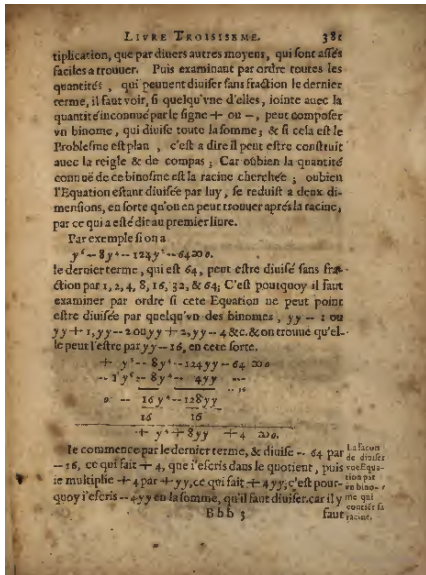 LIVRE TROISIESME. 381
tiplication, que par diuers autres moyens, qui sont assés
faciles a trouuer. Puis examinant par ordre toutes les
quantités, qui peuuent diuiser sans fraction le dernier
terme, il faut voir, si quelqu'vne d'elles, iointe auec la
quantité inconnuë par le signe + ou --, peut composer
vn binome, qui diuise toute la somme; & si cela est le
Problesme est plan, c'est a dire il peut estre construit
auec la reigle & de compas; Car oubien la quantité
connuë de ce binosme est la racine cherchée; oubien
l'Equation estant diuisée par luy, se reduist a deux di-
mensions, en sorte qu'on en peut trouuer aprés la racine,
par ce qui a esté dit au premier liure.
Par exemple si on a
y⁶ -- 8 y⁴ -- 124 y² -- 64 ∞ 0.
le dernier terme, qui est 64, peut estre diuisé sans fra-
ction par 1, 2, 4, 8, 16, 32, & 64; C'est pourquoy il faut
examiner par ordre si cete Equation ne peut point
estre diuisée par quelqu'vn des binomes, yy -- 1 ou
yy + 1, yy -- 2 ou yy + 2, yy -- 4 &c. & on trouue qu'el-
le peut l'estre par yy -- 16, en cete sorte.
+ y⁶ -- 8 y⁴ -- 124 yy -- 64 ∞ 0
-- 1 y⁶ -- 8 y⁴ -- 4 yy
0 -- 16 y⁴ -- 128 yy
16 16
+ y⁴ + 8 yy + 4 ∞ 0.
Ie commence par le dernier terme, & diuise -- 64 par
-- 16, ce qui fait + 4, que i'escris dans le quotient, puis
ie multiplie + 4 par + yy, ce qui fait + 4 yy; c'est pour-
quoy i'escris -- 4 yy en la somme, qu'il faut diuiser. car il y
Bbb 3 faut
La façon
de diuiser
vne Equa-
tion par
vn bino-
me qui
contient sa
racine.